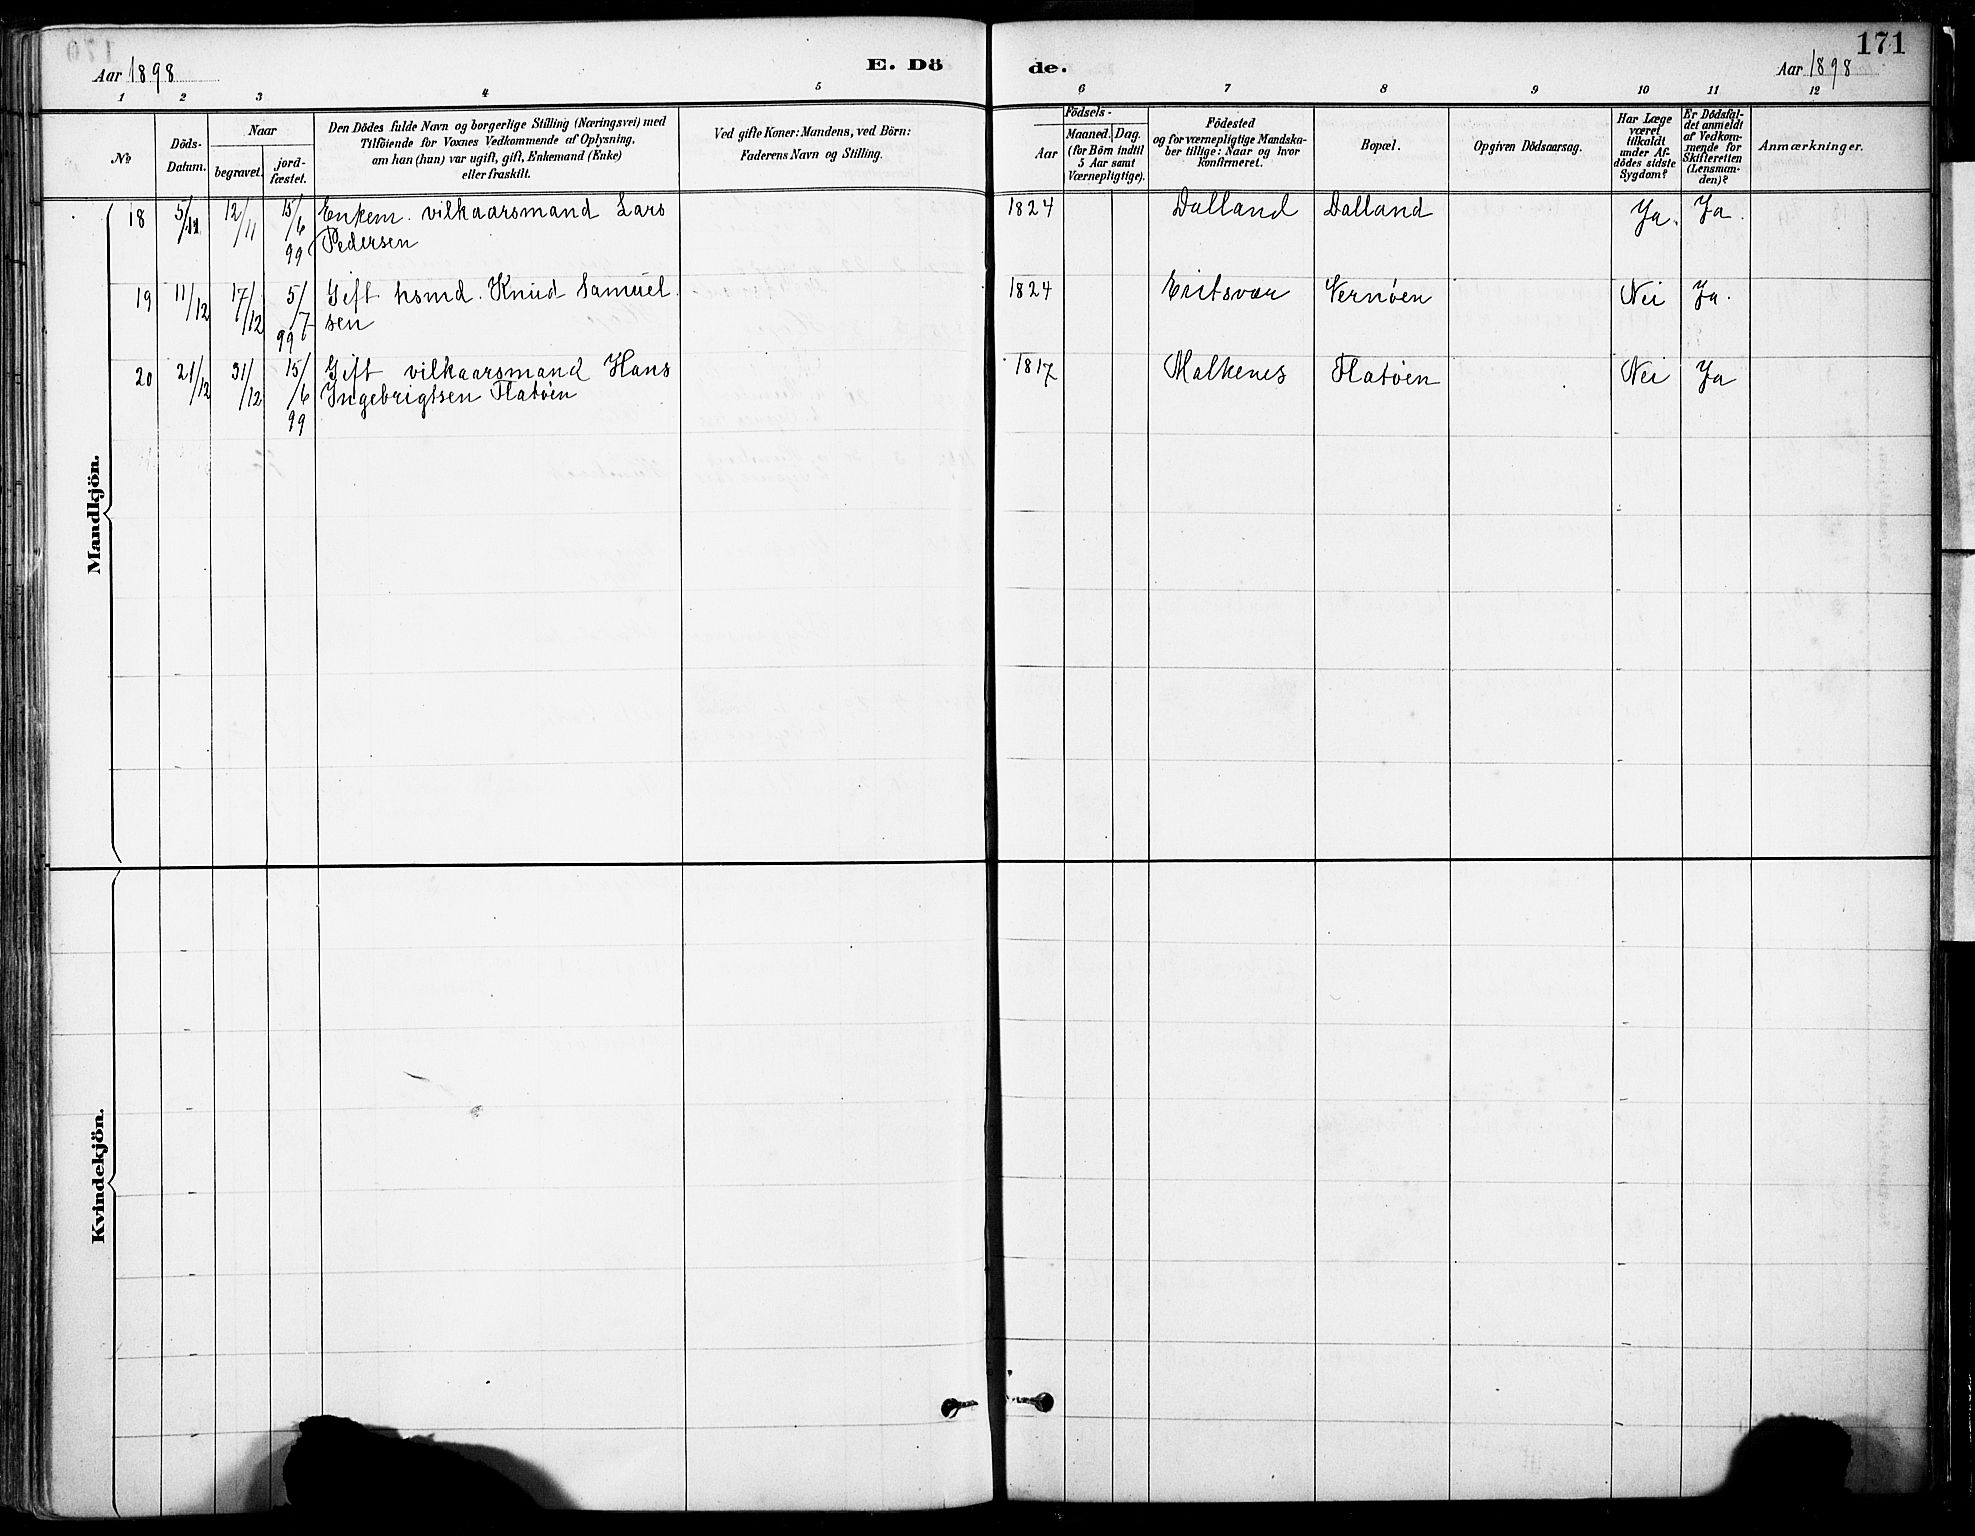 171
Aar 1898 E. Dö de. Aar 1898
1 2 3 4 5 6 7 8 9 10 11 12
No
Döds-
Datum.
Naar
begravet.
jord-
fæstet.
Den Dödes fulde Navn og borgerlige Stilling (Næringsvei) med
Tilföiende for Voxnes Vedkommende af Oplysning,
om han (hun) var ugift, gift, Enkemand (Enke)
eller fraskilt.
Ved gifte Koner: Mandens, ved Börn:
Faderens Navn og Stilling.
Födsels-
Aar
Maaned. Dag.
(for Börn indtil
5 Aar samt
Værnepligtige).
Födested
og for værnepligtige Mandska-
ber tillige: Naar og hvor
konfirmeret.
Bopæl.
Opgiven Dödsaarsag.
Har Læge
været
tilkaldt
under Af-
dödes sidste
Sygdom?
Er Dödsfal-
det anmeldt
af Vedkom-
mende for
Skifteretten
(Lensman-
den)?
Anmærkninger.
Mandkjön.
18 5/11 12/11 15/6 99 Enkem. vilkaarsmand Lars
Pedersen
1824 Dalland Dalland Ja. Ja.
19 11/12 17/12 5/7 99 Gift hsmd. Knud Samuel
sen
1824 Eritsvær Vernöen Nei Ja.
20 21/12 31/12 15/6 99 Gift vilkaarsmand Hans
Ingebrigtsen Flatöen
1817 Malkenes Flatöen Nei Ja
Kvindekjön.